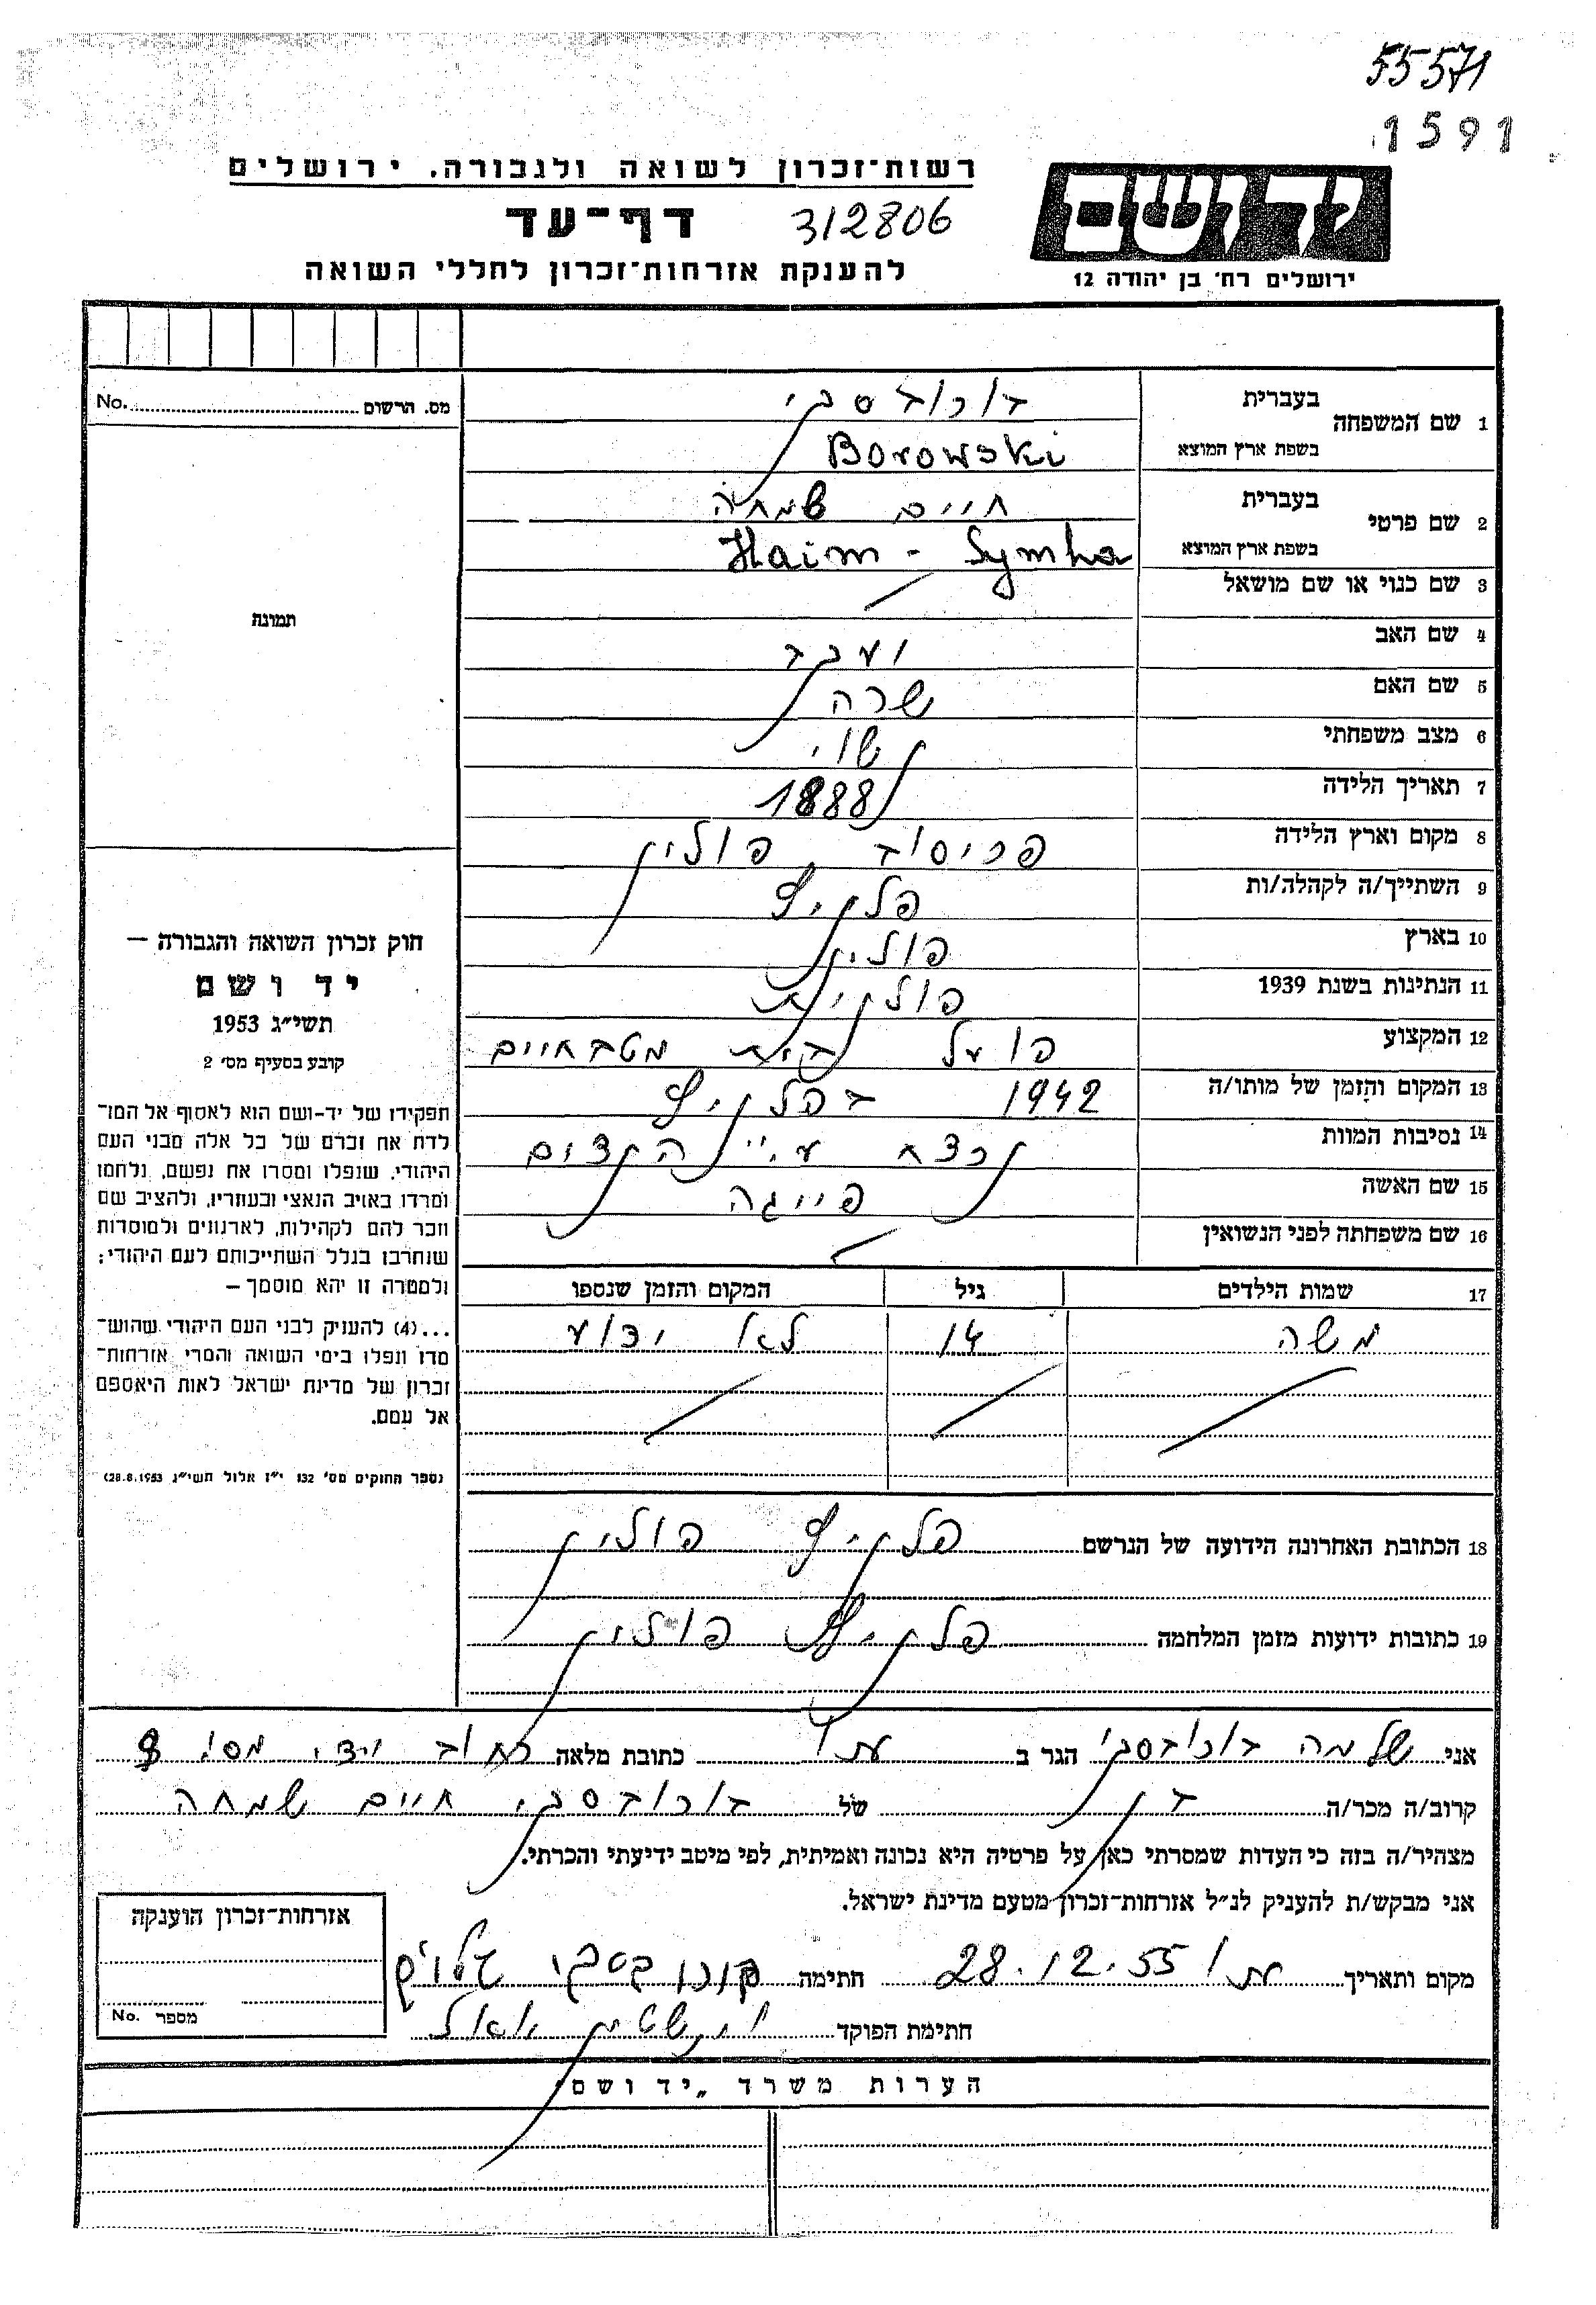 55571
1591
רשות־זכרון לשואה ולגבורה. ירושלים
ידושם
דף־עד 312806
ירושלים רח' בן יהודה 12
להענקת אזרחות־זכרון לחללי השואה
מס. הרשום No.
1 שם המשפחה בעברית בורובסקי
בשפת ארץ המוצא Borowski
2 שם פרטי בעברית חיים שמחה
בשפת ארץ המוצא Haim - Symha
3 שם כנוי או שם מושאל
תמונה
4 שם האב יעקב
5 שם האם שרה
6 מצב משפחתי נשוי
7 תאריך הלידה 1888
8 מקום וארץ הלידה פריסוב פולין
9 השתייך/ה לקהלה/ות פלניץ
10 בארץ פולין
11 הנתינות בשנת 1939 פולנית
12 המקצוע פועל בית מטבחיים
13 המקום והזמן של מותו/ה 1942 בפלניץ
14 נסיבות המוות נרצח ע"י הנצים
15 שם האשה פייגה
16 שם משפחתה לפני הנשואין
חוק זכרון השואה והגבורה –
יד ושם
תשי"ג 1953
קובע בסעיף מס' 2
תפקידו של יד-ושם הוא לאסוף אל המו־
לדת את זכרם של כל אלה מבני העם
היהודי, שנפלו ומסרו את נפשם, נלחמו
ומרדו באויב הנאצי ובעוזריו, ולהציב שם
וזכר להם לקהילות, לארגונים ולמוסדות
שנחרבו בגלל השתייכותם לעם היהודי;
ולמטרה זו יהא מוסמך –
...(4) להעניק לבני העם היהודי שהוש־
מדו ונפלו בימי השואה והמרי אזרחות־
זכרון של מדינת ישראל לאות היאספם
אל עמם.
(ספר החוקים מס' 132 י"ז אלול תשי"ג 28.8.1953)
17 שמות הילדים גיל המקום והזמן שנספו
משה 14 לא ידוע
18 הכתובת האחרונה הידועה של הנרשם פלניץ פולין
19 כתובות ידועות מזמן המלחמה פלניץ פולין
אני שלמה בורובסקי הגר ב עתו כתובת מלאה רחוב מס' 8
קרוב/ה מכר/ה בן של בורובסקי חיים שמחה
מצהיר/ה בזה כי העדות שמסרתי כאן על פרטיה היא נכונה ואמיתית, לפי מיטב ידיעתי והכרתי.
אני מבקש/ת להעניק לנ"ל אזרחות־זכרון מטעם מדינת ישראל.
מקום ותאריך 28.12.55 חתימה
חתימת הפוקד
אזרחות־זכרון הוענקה
מספר No.
הערות משרד „יד ושם"